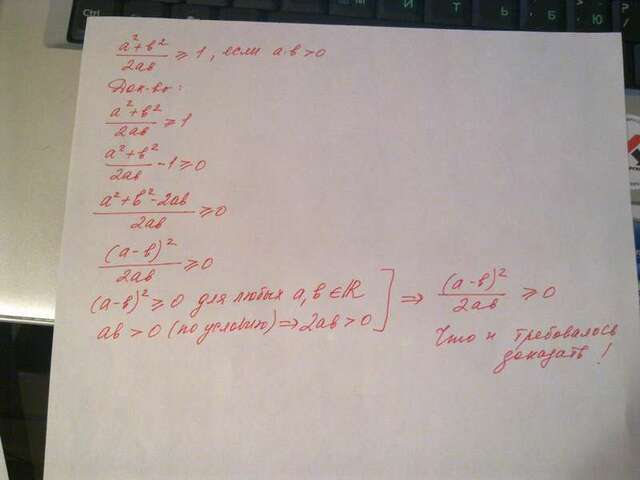 (a²+b²)/(2ab) ≥ 1, если a·b > 0
Док-во:
(a²+b²)/(2ab) ≥ 1
(a²+b²)/(2ab) - 1 ≥ 0
(a²+b²-2ab)/(2ab) ≥ 0
(a-b)²/(2ab) ≥ 0
(a-b)² ≥ 0 для любых a, b ∈ ℝ
ab > 0 (по условию) ⇒ 2ab > 0 ] ⇒ (a-b)²/(2ab) ≥ 0
Что и требовалось
доказать!